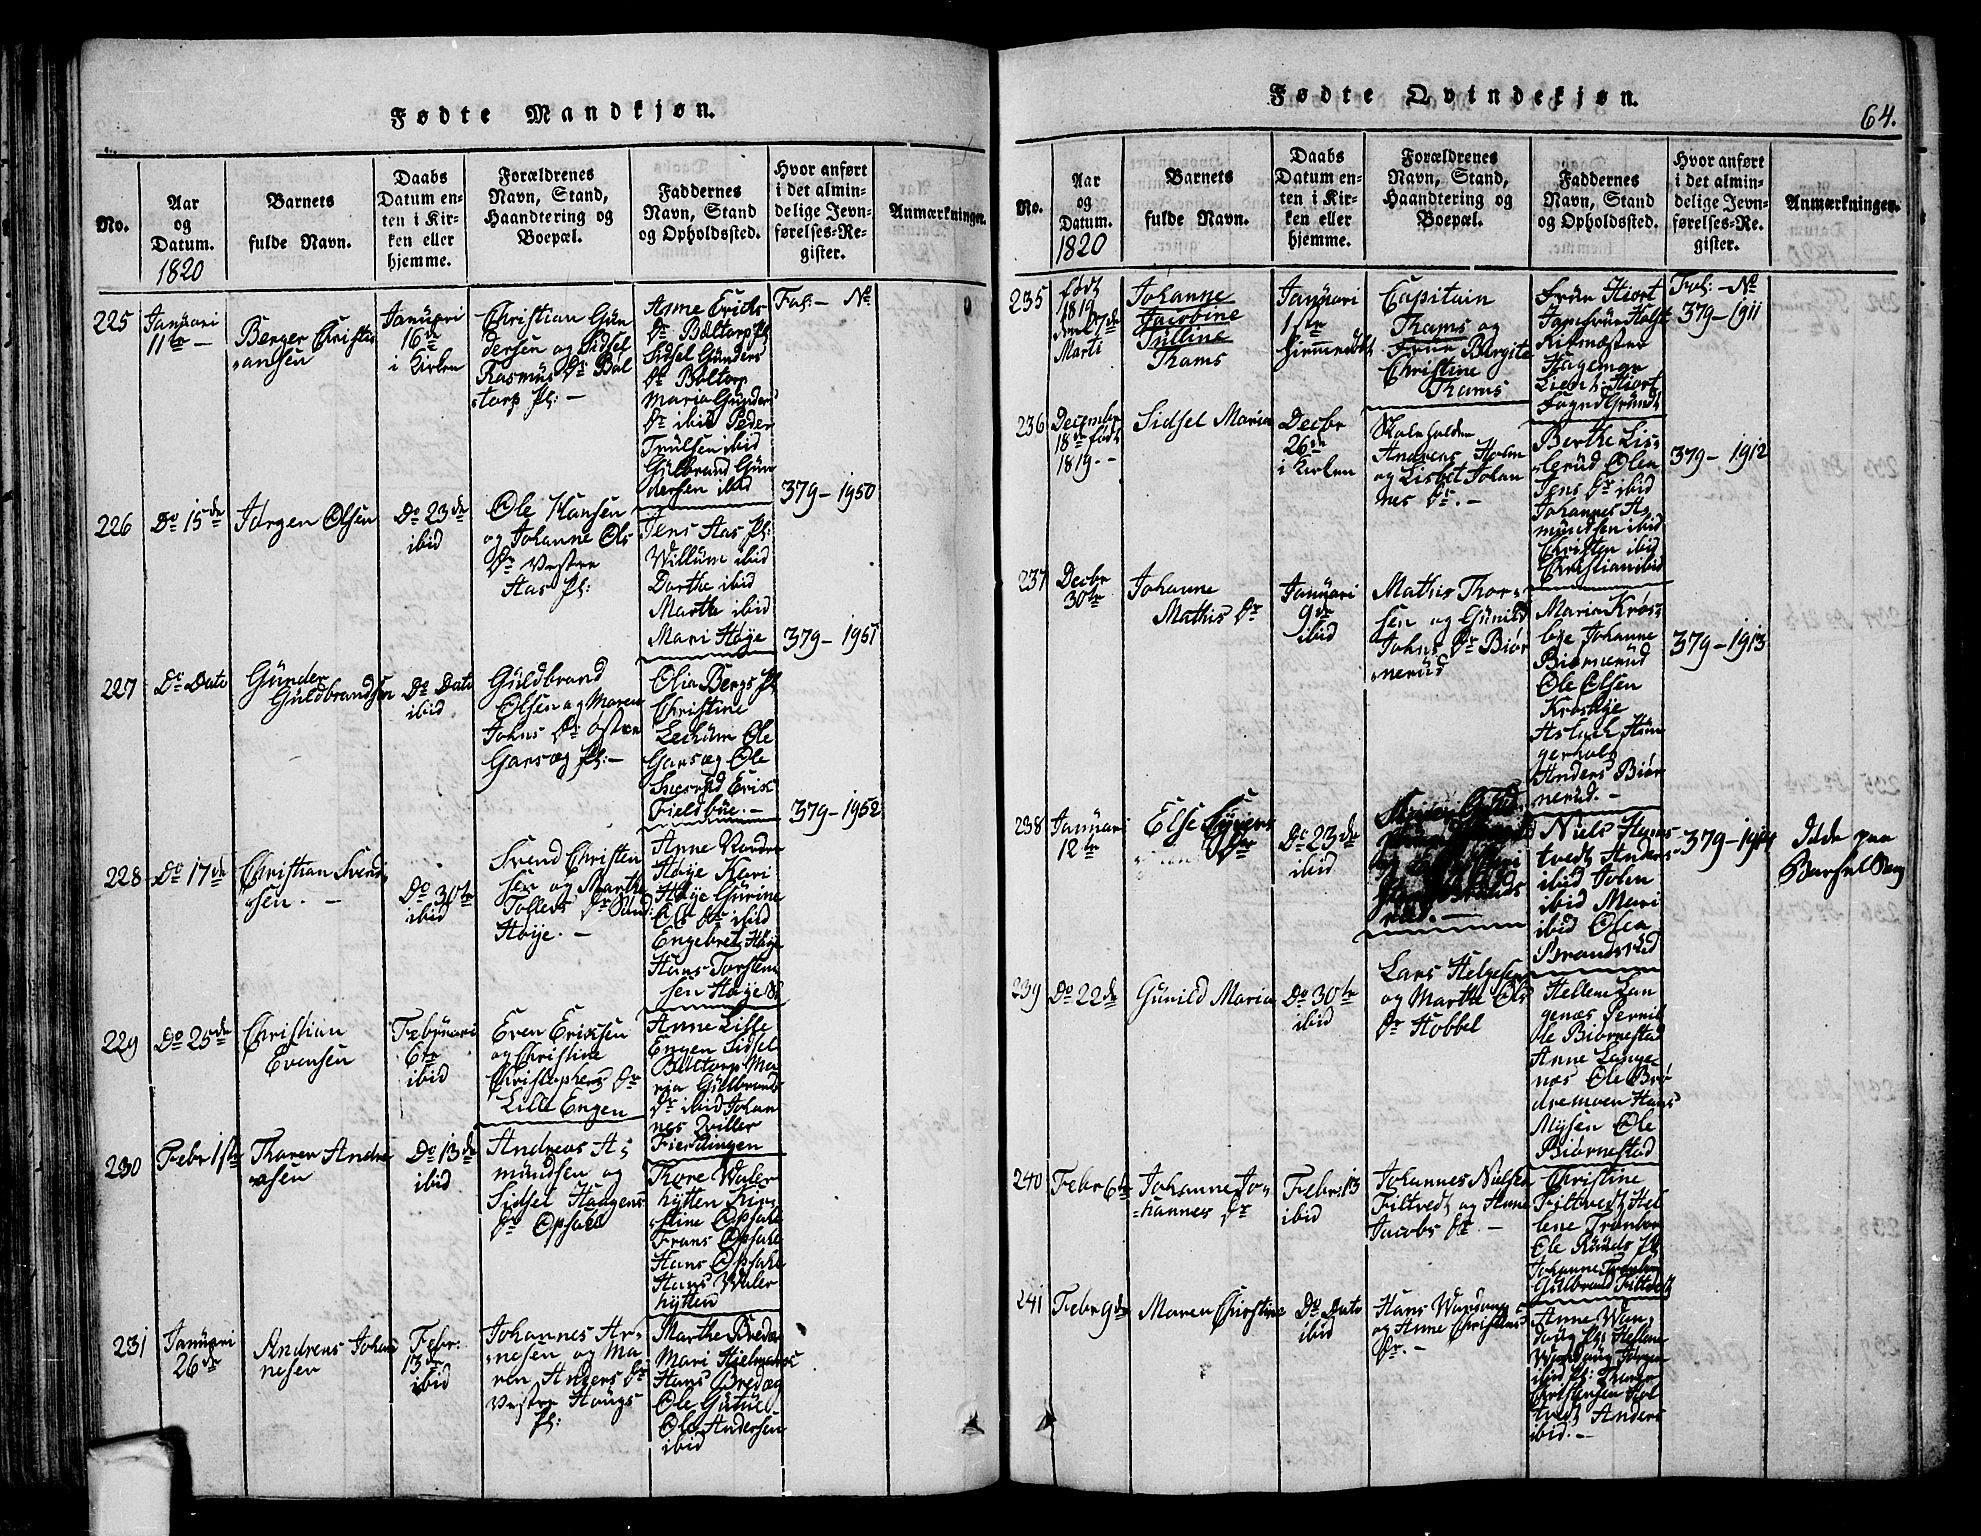 Fødte Mandkjøn.
No.
Aar
og
Datum.
1820
Barnets
fulde Navn.
Daabs
Datum en-
ten i Kir-
ken eller
hjemme.
Forældrenes
Navn, Stand,
Haandtering og
Boepæl.
Faddernes
Navn, Stand
og Opholdssted.
Hvor anført
i det almin-
delige Jevn-
førelses-Re-
gister.
Anmærkninger.
225
Januari
11te —
Berger Christi
ansen
Januari
16de
i Kirken
Christian Gün
dersen og Sidsel
Rasmus Dr Böl
torp Pl: —
Anne Erichs
Dr Böltorp Pl
Sidsel Günders
Dr Böltorp
Maria Günders
Dr ibid Peder
Truulsen ibid
Gülbrand Gün
dersen ibid
Fol: — No
379 — 1950
226
Do 15de
Jørgen Olsen
Do 23de
ibid
Ole Hansen
og Johanne Ols
Dr Vestre
Aas Pl:
Jens Aas Pl:
Willum ibid
Dorthe ibid
Marthe ibid
Mari Høje
379 — 1951
227
Do Dato
Günder
Güldbrandsen
Do Dato
ibid
Güldbrand
Olsen og Maren
Johns Dr østre
Garsæg Pl: —
Olia Bergs Pl
Christine
Lechum Ole
Garsæg Ole
Erik
Fieldbüe. —
379 — 1952
228
Do 17de
Christian Svend
sen. —
Do 30te
ibid
Svend Christen
sen og Marthe
Tollevs Dr
Høije. —
Anne
Høije Kari
Høije Gürine
Ols Dr ibid
Engebret Høije
Hans Torsten
sen Høije
229
Do 25de
Christian
Evensen
Februari
6te
ibid
Even Eriksen
og Christine
Christophers Dr
Lille Engen
Anne Lille
Engen Sidsel
Böltorp Ma
ria Gülbrands
Dr ibid Johan
nes
Fierdingen
230
Febr 1ste
Thoren Andre
asen
Do 13de
ibid
Andreas As
mündsen og
Sidsel Haagens
Dr Opsahl
Thore Waler
hytten Kir
stine Opsahl
Frans Opsahl
Hans Opsahl
Hans Waler
hytten
231
Januari
26de
Andreas Johan
nesen
Febr:
13de
ibid
Johannes Ar
nesen og Ma
ren Anders Dr
Vestre Haugs
Pl:
Marthe Bredæg
Mari
Hans Bredæg
Ole
Ole Andersen
ibid
Fødte Qvindekjøn.
64.
No.
Aar
og
Datum.
1820
Barnets
fulde Navn.
Daabs
Datum en-
ten i Kir-
ken eller
hjemme.
Forældrenes
Navn, Stand,
Haandtering og
Boepæl.
Faddernes
Navn, Stand
og Opholdssted.
Hvor anført
i det almin-
delige Jevn-
førelses-Re-
gister.
Anmærkninger.
235
født
1819
den 7de
Marti
Johanne
Jacobine
Julline
Thams
Januari
1ste
hjemmedøbt
Capitain
Thams og
Früe Birgite
Christine
Thams
Früe Hiort
Jomfrue Holst
Ritmester
Hageman
Lieut: Hiort
Foged Gründt
Fol: — No
379 — 1911
236
December
18de født
1819. —
Sidsel Maria
Decbr
26de
i Kirken
Skoleholder
Andreas Holm
og Lisbet Johan
nes Dr. —
Berthe Lis
lerüd Olea
Jens Dr ibid
Johannes As
mündsen ibid
Christen ibid
Christian ibid
379 — 1912
237
Decbr
30te
Johanne
Mathis Dr
Januari
9de
ibid
Mathis Thor
sen og Gunild
Johns Dr Biør
nerüd
Maria Kros
bye Johanne
Biørnerüd
Ole Olsen
Krosbye
Aslach Hün
gerholt
Anders Biør
nerüd. —
379 — 1913
238
Januari
12te
Else
Dr
Do 23de
ibid
Niels Hams
tvedt Anders
ibid John
ibid Mari
ibid Olea
Brandsrüd
379 — 1914
Døde paa
Barsel Seng
239
Do 22de
Günild Maria
Do 30te
ibid
Lars Helgesen
og Marthe Ols
Dr Hobbel
Hellene Lan
genæs Pernil
le Biørnestad
Anne Lange
næs Ole Brø
dremoen Hans
Mysen Ole
Biørnestad
240
Febr 6te
Johanne Jo
hannes Dr
Febr: 13
ibid
Johannes Nielsen
Filtvedt og Anne
Jacobs Dr. —
Christine
Filtvedt Hel
lene Tronbør
Ole Ründs Pl
Johanne Tronbør
Gülbrand Filtvedt
241
Febr 9de
Maren Christine
Do Dato
ibid
Hans Wandaug
og Anne Christens
Dr. —
Anne Wan
daug Pl: Hellene
Wandaug Jørgen
ibid Pl: Thorer
Christensen
tvedt Anders
ibid. —